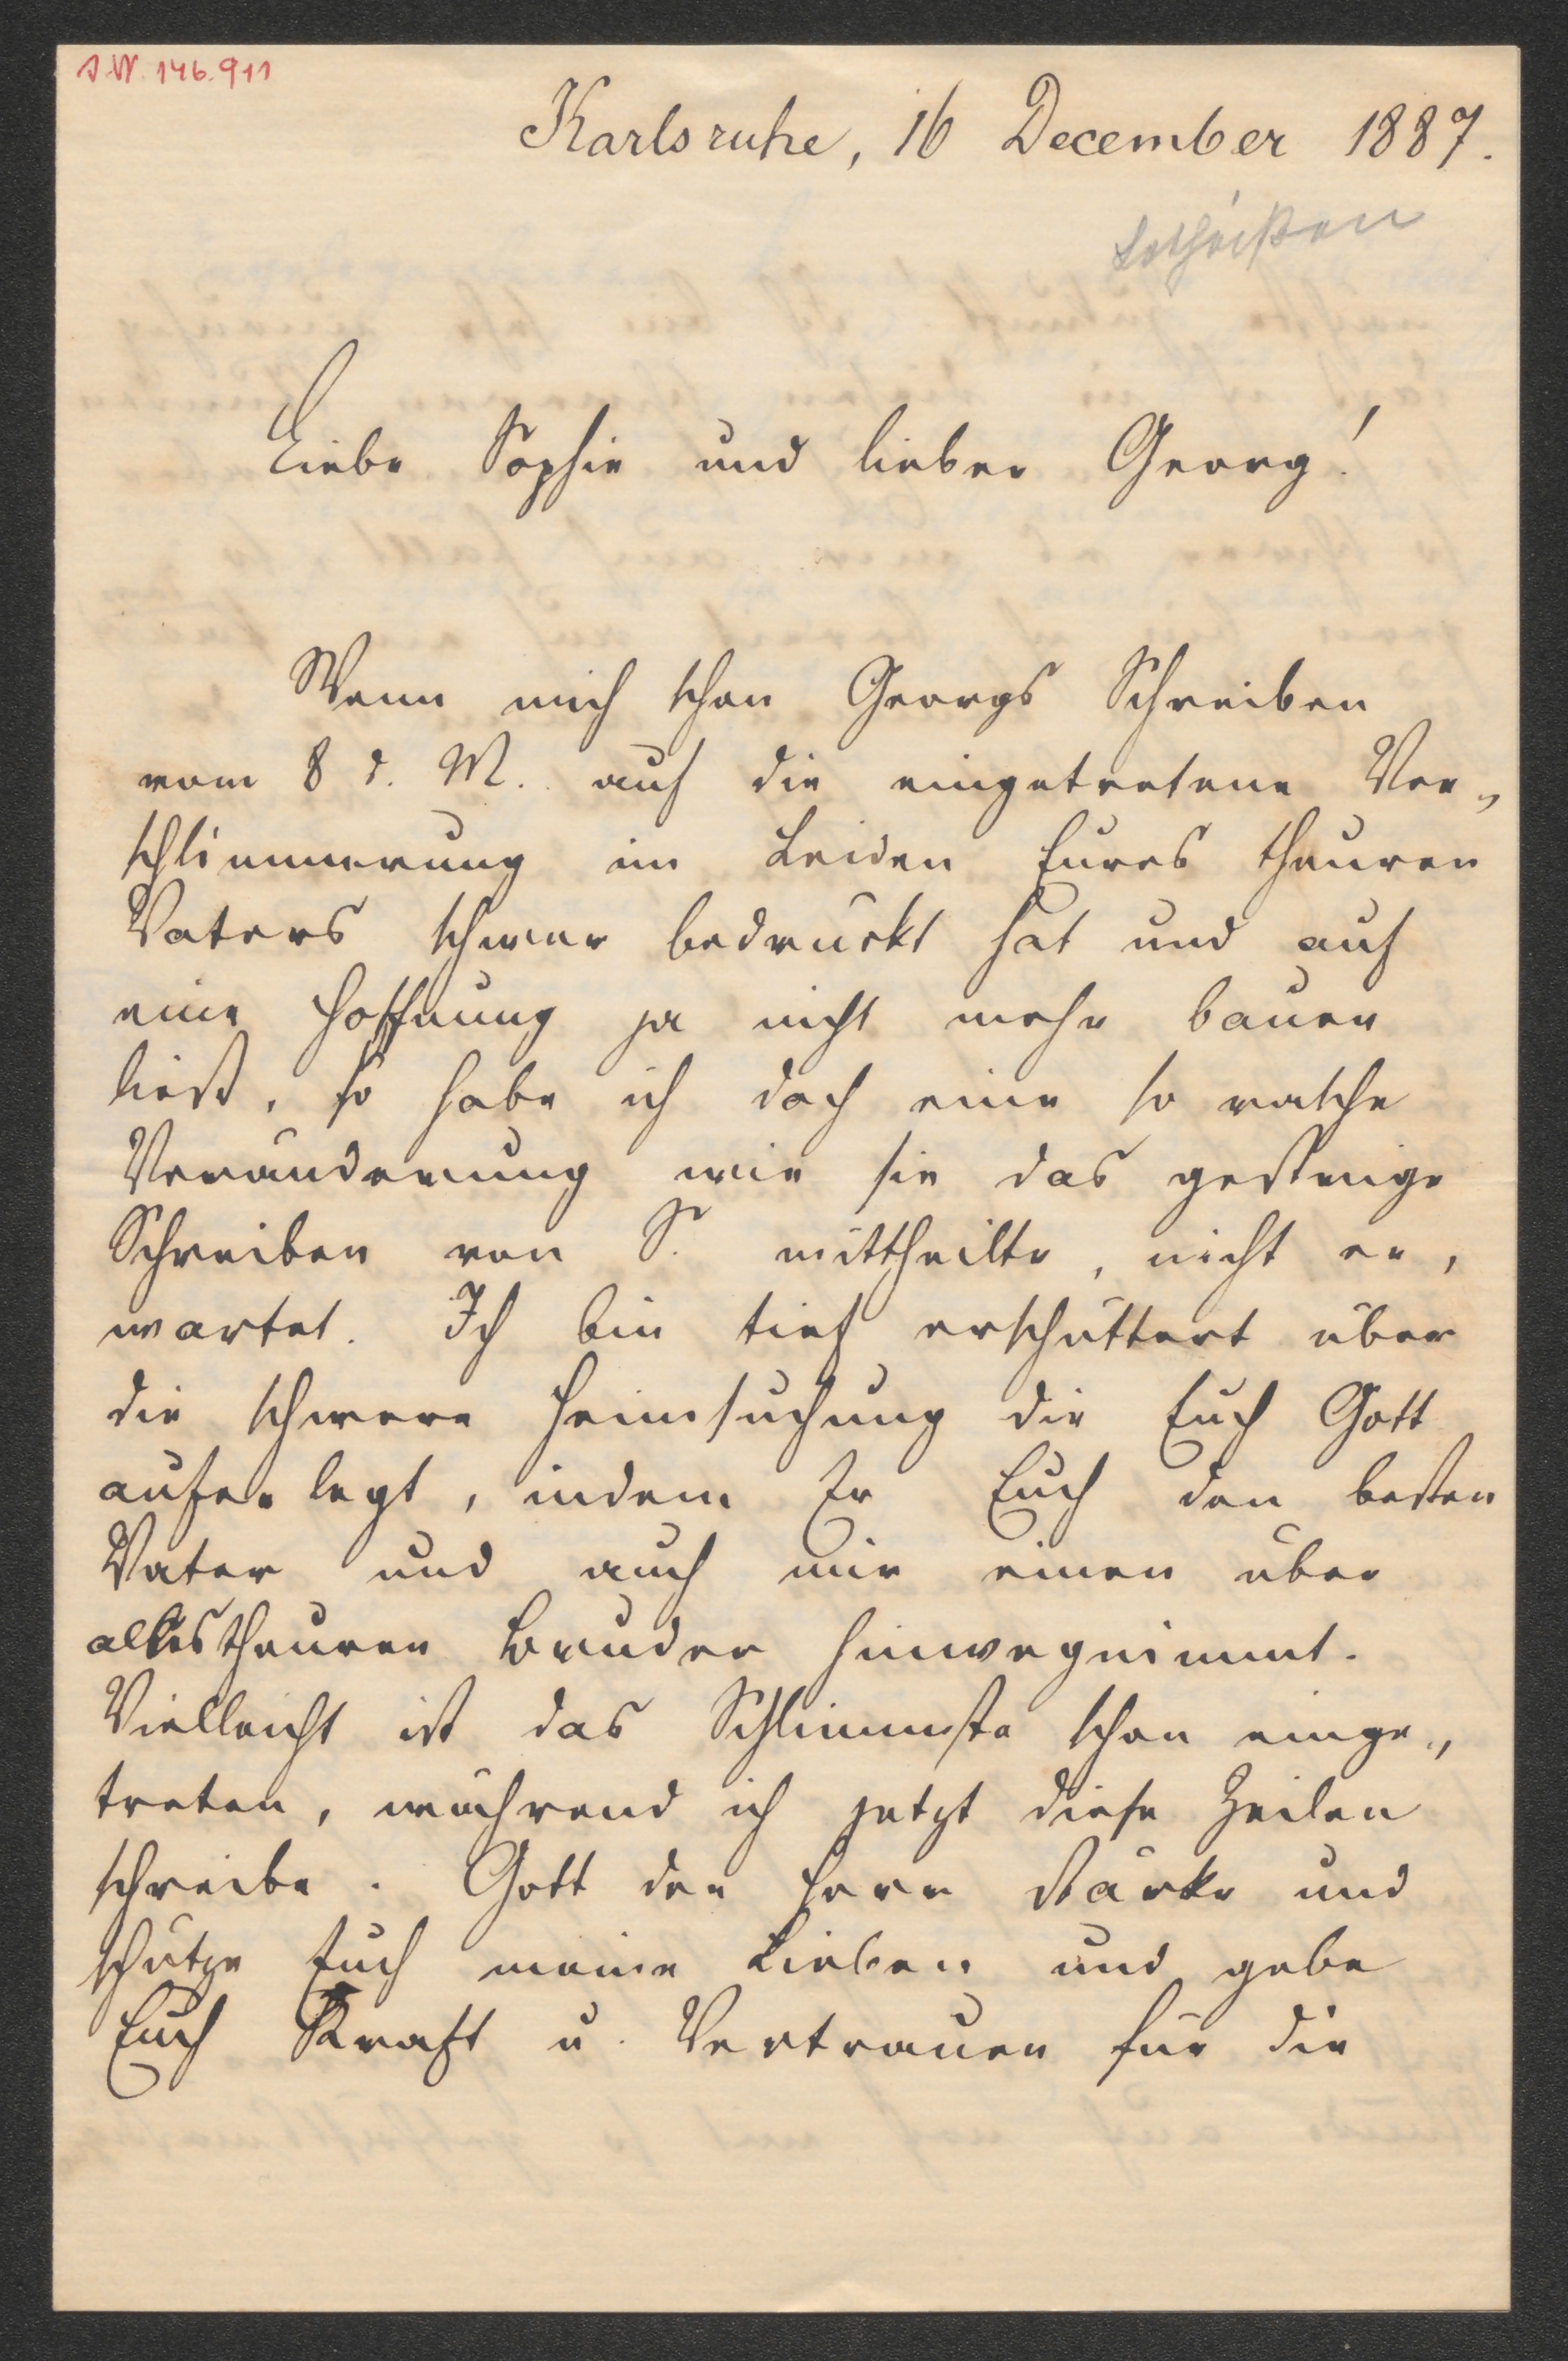 J.N. 146.911
Karlsruhe, 16 December 1887.
Lotheißen
Liebe Sophie und lieber Georg!
Wenn mich schon Georgs Schreiben
vom 8 d. M. auf die eingetretene Ver„
schlimmerung im Leiden Eures theuren
Vaters schwer bedrückt hat und auf
eine Hoffnung ja nicht mehr bauen
ließ, so habe ich doch eine so rasche
Veränderung wie sie das gestrige
Schreiben von S. mittheilte, nicht er„
wartet. Ich bin tief erschüttert über
die schwere Heimsuchung die Euch Gott
auferlegt, indem Er Euch den besten
Vater und auch mir einen über
alles theuren Bruder hinwegnimmt.
Vielleicht ist das Schlimmste schon einge„
treten, während ich jetzt diese Zeilen
schreibe. Gott der Herr stärke und
schütze Euch meine Lieben und gebe
Euch Kraft u. Vertrauen für die